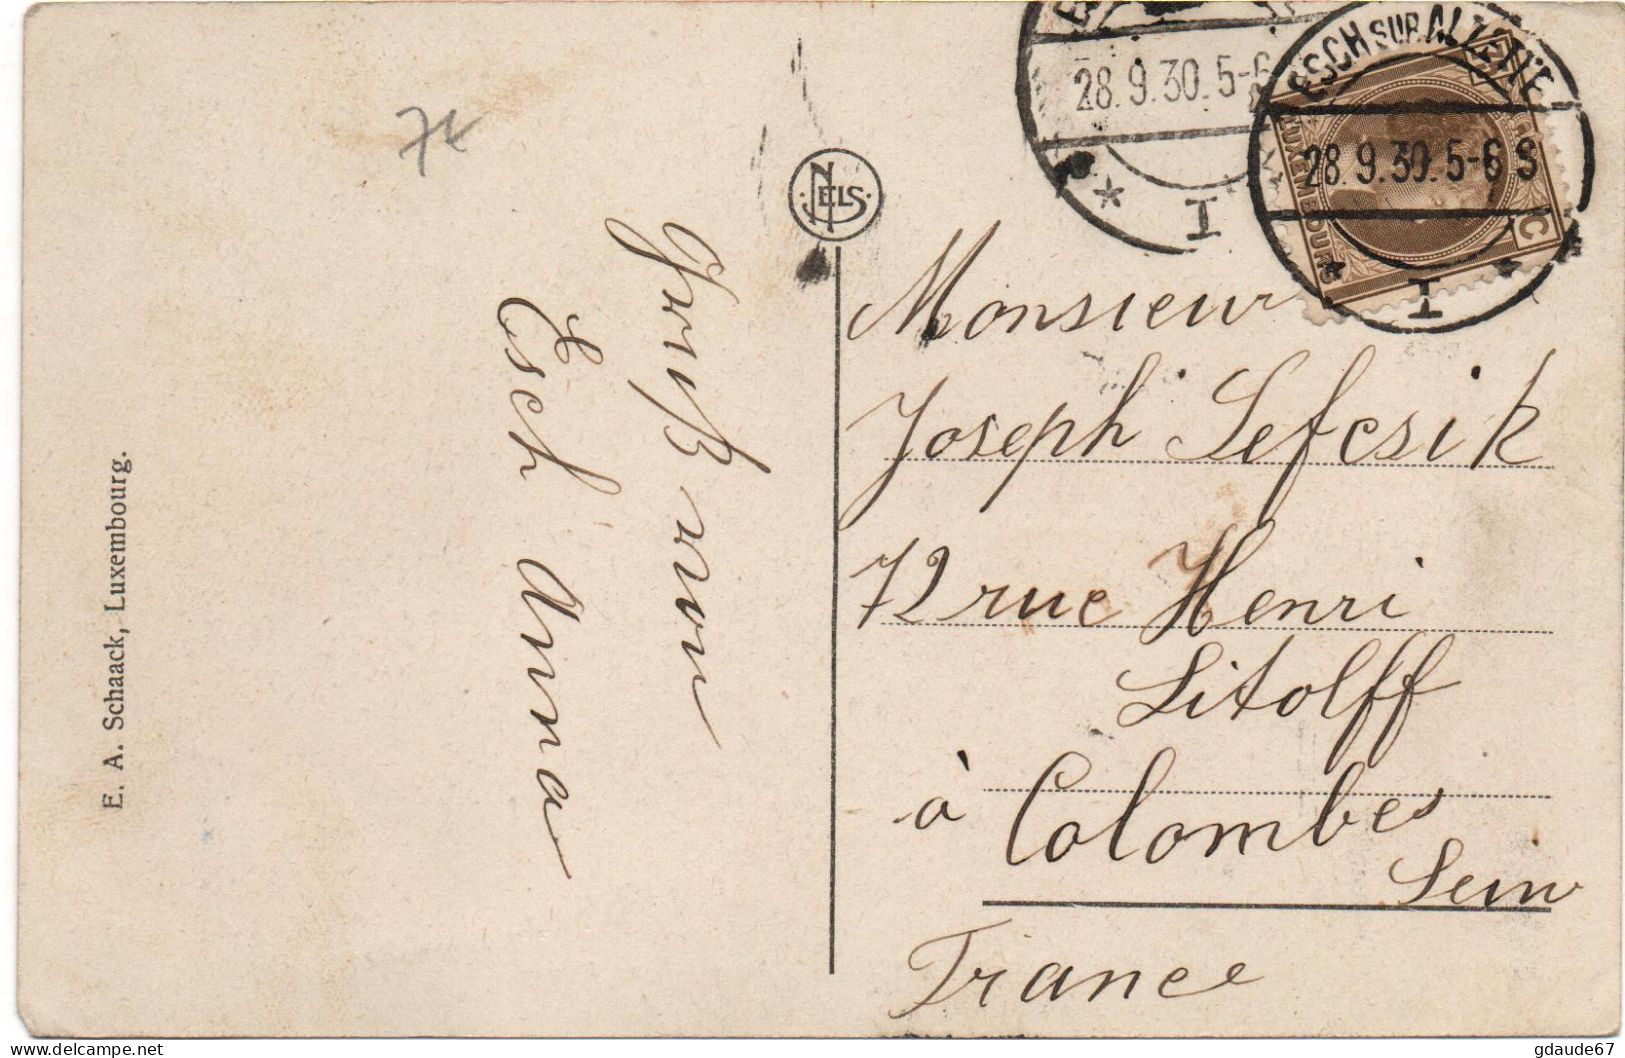 E. A. Schaack, Luxembourg.
74
Gruß von
Esch Anna
NELS
28.9.30.5-6
I
ESCH SUR ALZETTE
28.9.30.5-6 S
I
LUXEMBOURG
C
Monsieur
Joseph Sefcsik
72 rue Henri
Litolff
à Colombes
Sein
France
delcampe.net
gdaude67